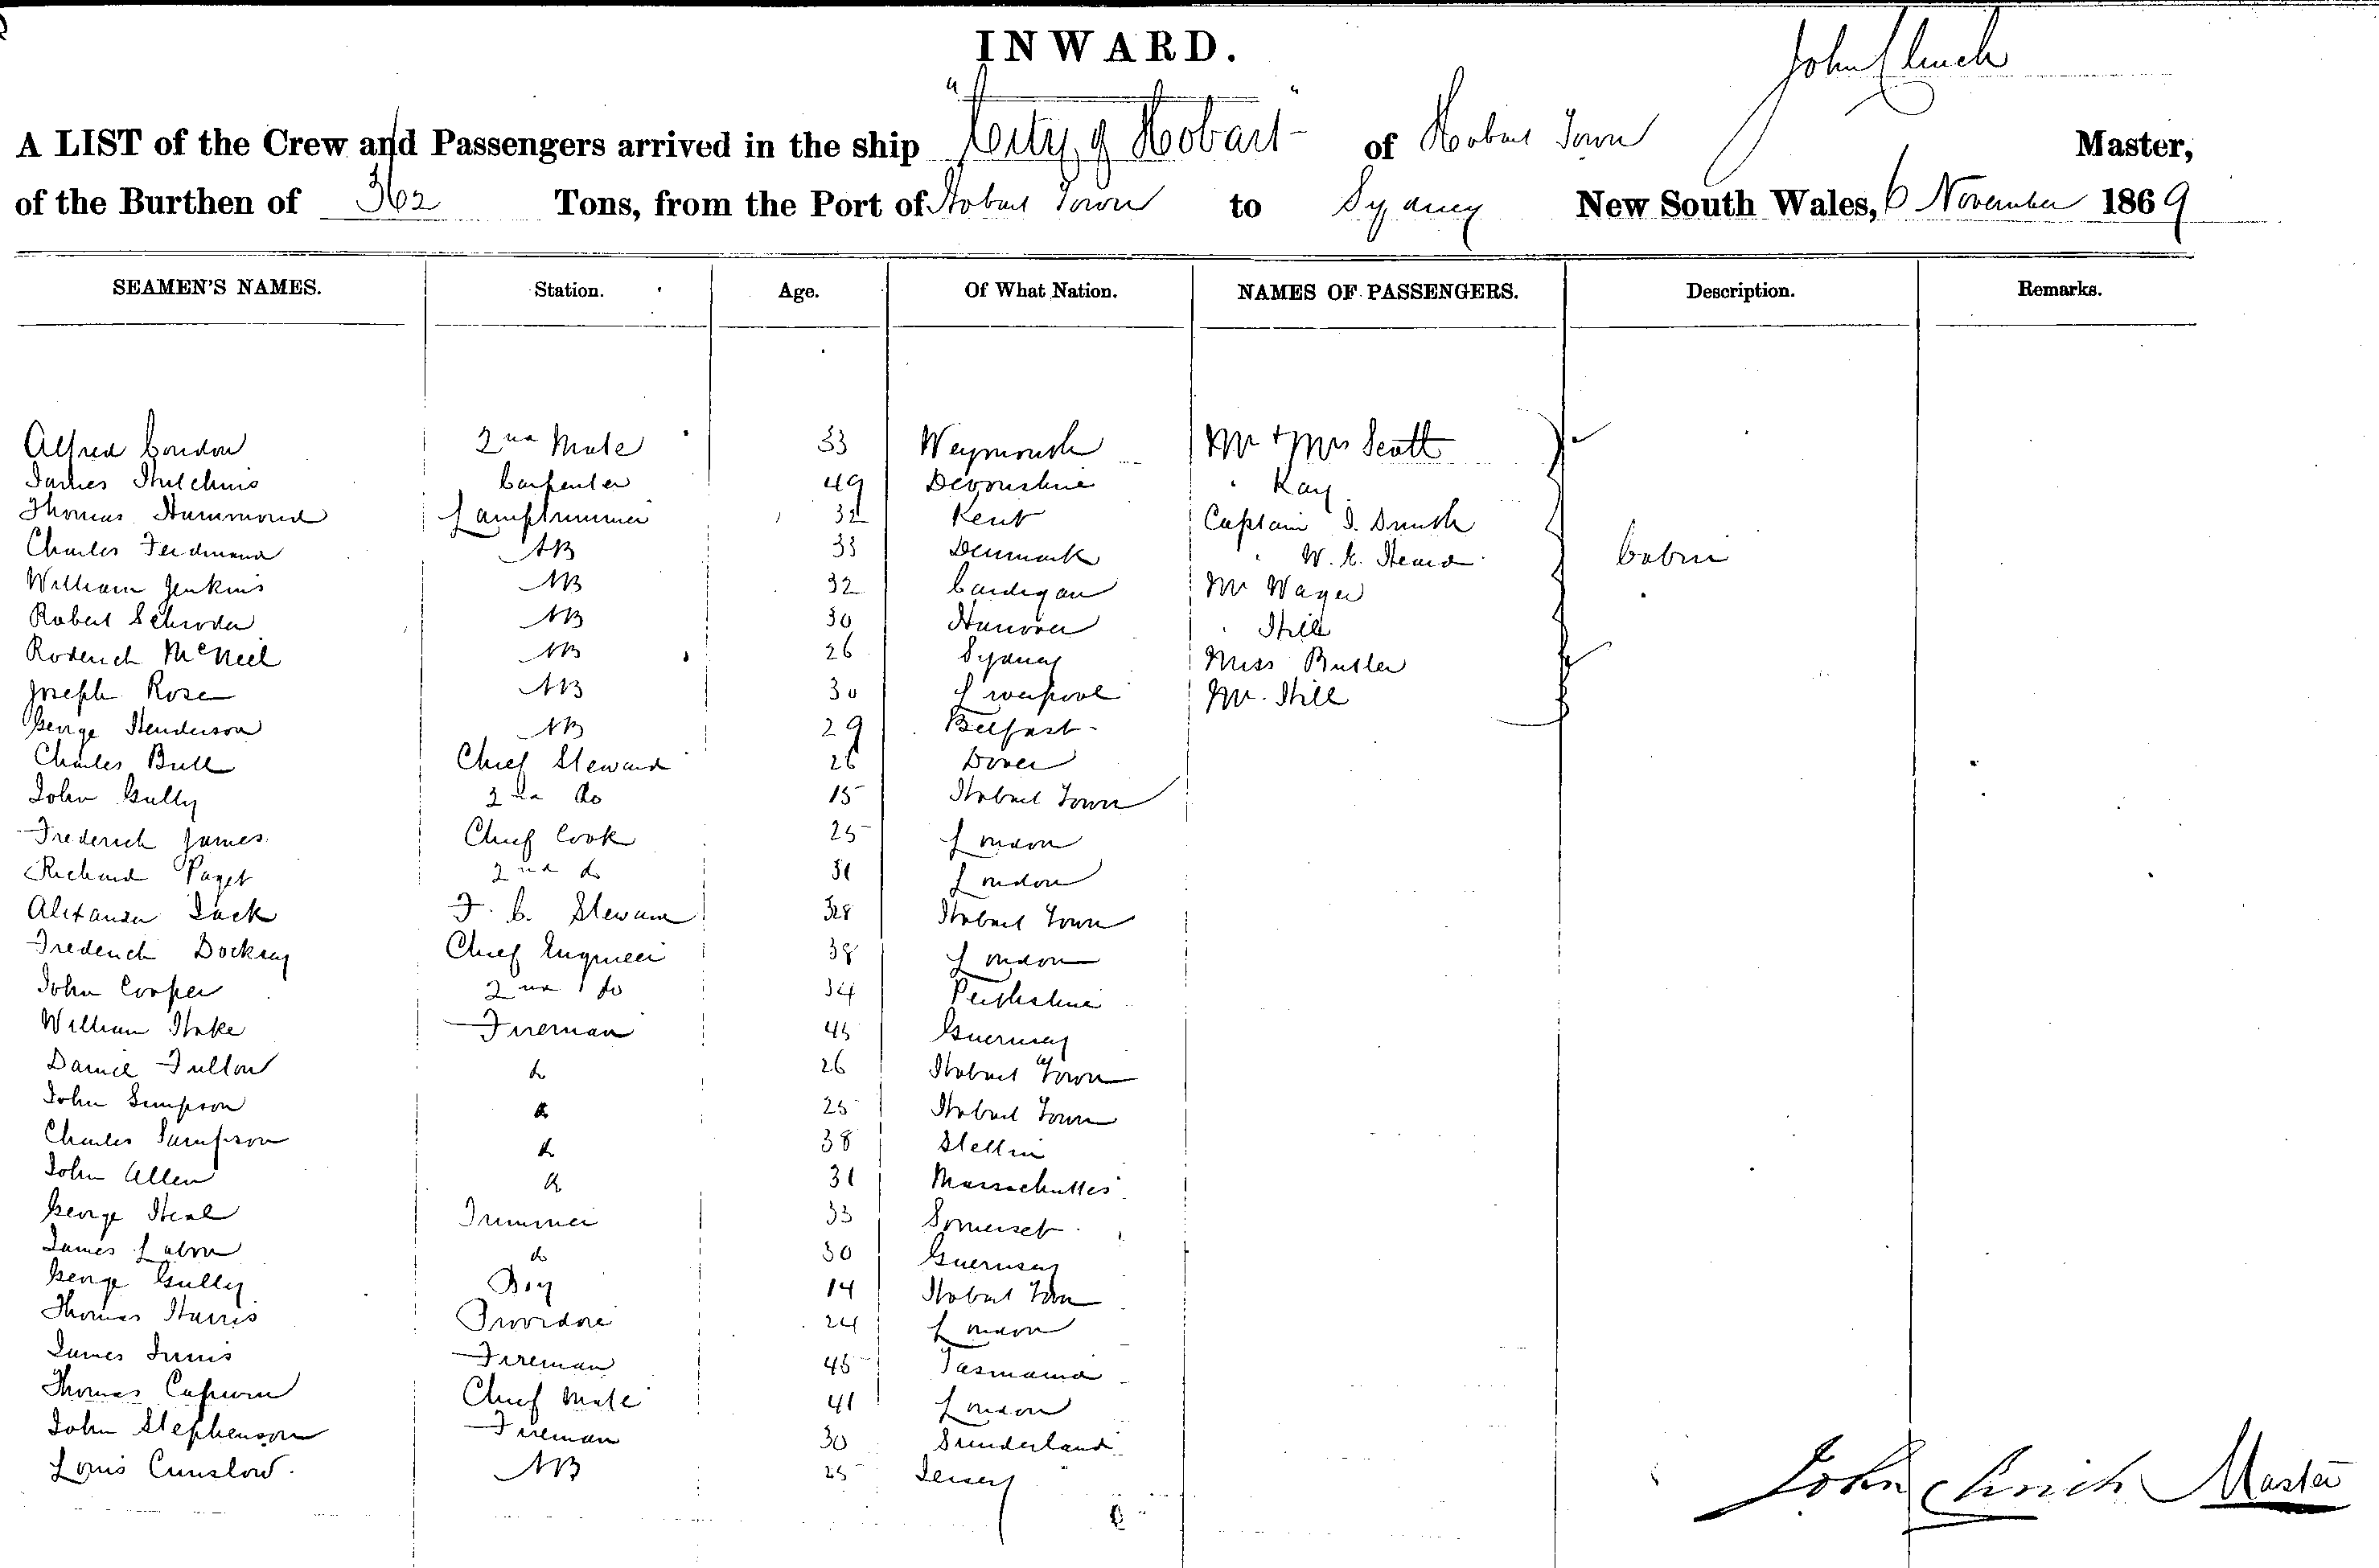 INWARD.
John Clinch
A LIST of the Crew and Passengers arrived in the ship "City of Hobart" of Hobart Town Master,
of the Burthen of 362 Tons, from the Port of Hobart Town to Sydney New South Wales, 6 November 1869
SEAMEN'S NAMES. Station. Age. Of What Nation. NAMES OF PASSENGERS. Description. Remarks.
Alfred Condon 2nd Mate 33 Weymouth Mr & Mrs Scott
James Hutchins Carpenter 49 Devonshire Kay
Thomas Hammond Lamptrimmer 32 Kent Captain J. Smith
Charles Ferdinand AB 33 Denmark W. E. Heard Cabin
William Jenkins AB 32 Cardigan Mr Wager
Robert Schroder AB 30 Hanover Hill
Roderick McNeil AB 26 Sydney Miss Butler
Joseph Rose AB 30 Liverpool Mr. Hill
George Henderson AB 29 Belfast
Charles Bull Chief Steward 26 Dover
John Gully 2nd do 15 Hobart Town
Frederick James Chief Cook 25 London
Richard Paget 2nd do 31 London
Alexander Jack F. C. Steward 28 Hobart Town
Frederick Dockray Chief Engineer 38 London
John Cooper 2nd do 34 Perthshire
William Hoke Fireman 45 Guernsey
Daniel Fulton do 26 Hobart Town
John Simpson do 25 Hobart Town
Charles Sampson do 38 Stettin
John Allen do 31 Massachuttes
George Heal Trimmer 33 Somerset
James do 30 Guernsey
George Gully Boy 14 Hobart Town
Thomas Harris Providore 24 London
James Innis Fireman 45 Tasmania
Thomas Capurn Chief Mate 41 London
John Stephenson Fireman 30 Sunderland
Louis Cunslow. AB 25 Jersey
John Clinch Master